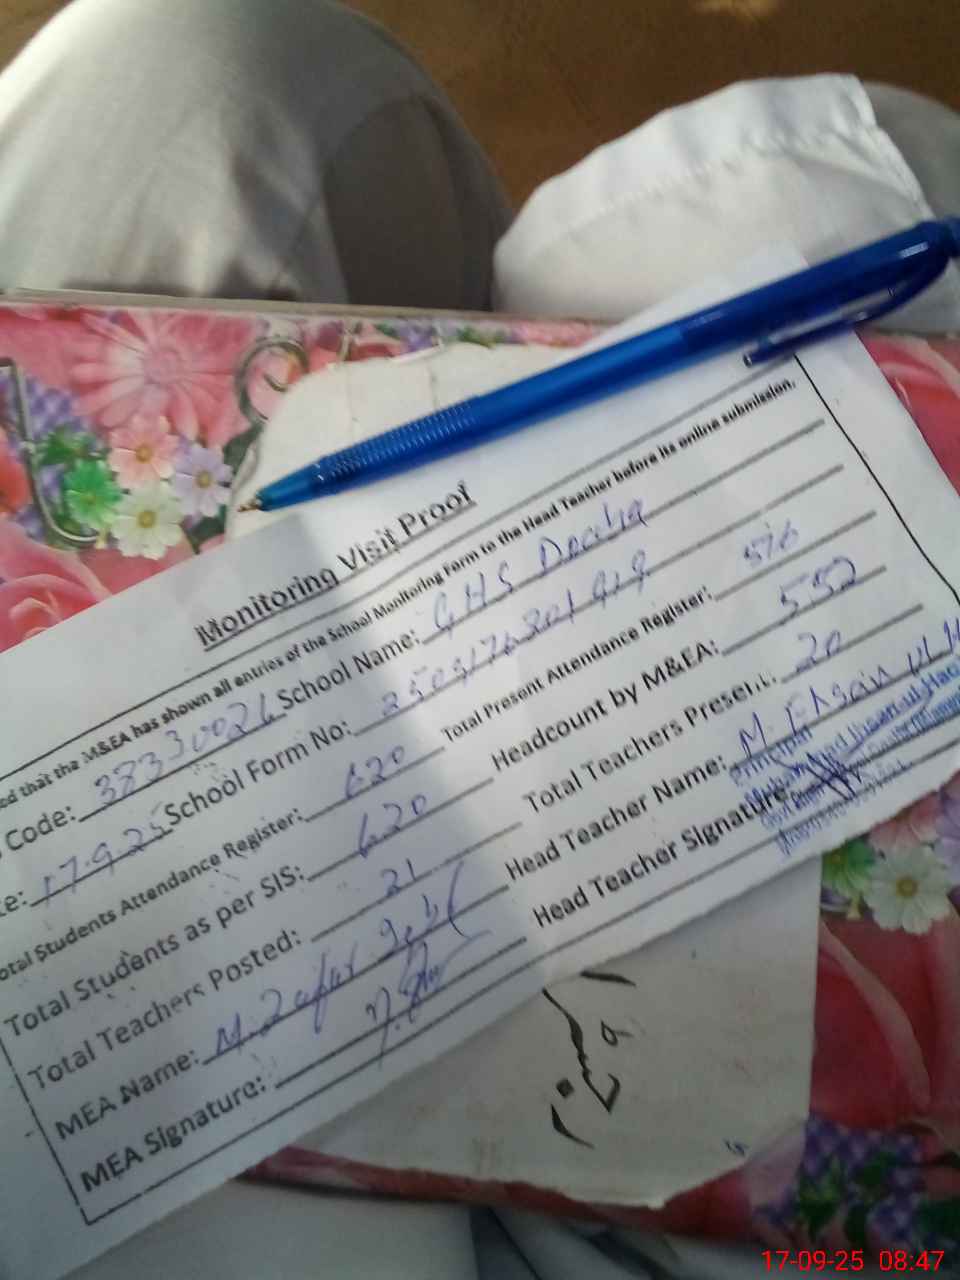 Monitoring Visit Proof
ed that the M&EA has shown all entries of the School Monitoring Form to the Head Teacher before its online submission.
Code: 38330026 School Name: GHS
te: 17.9.25 School Form No:
otal Students Attendance Register: 620 Total Present Attendance Register: 516
Total Students as per SIS: 620 Headcount by M&EA: 552
Total Teachers Posted: 21 Total Teachers Present: 20
MEA Name: M. Zafar Iqbal Head Teacher Name: M. Ehsan Ul
MEA Signature: Head Teacher Signature:
Principal
17-09-25 08:47